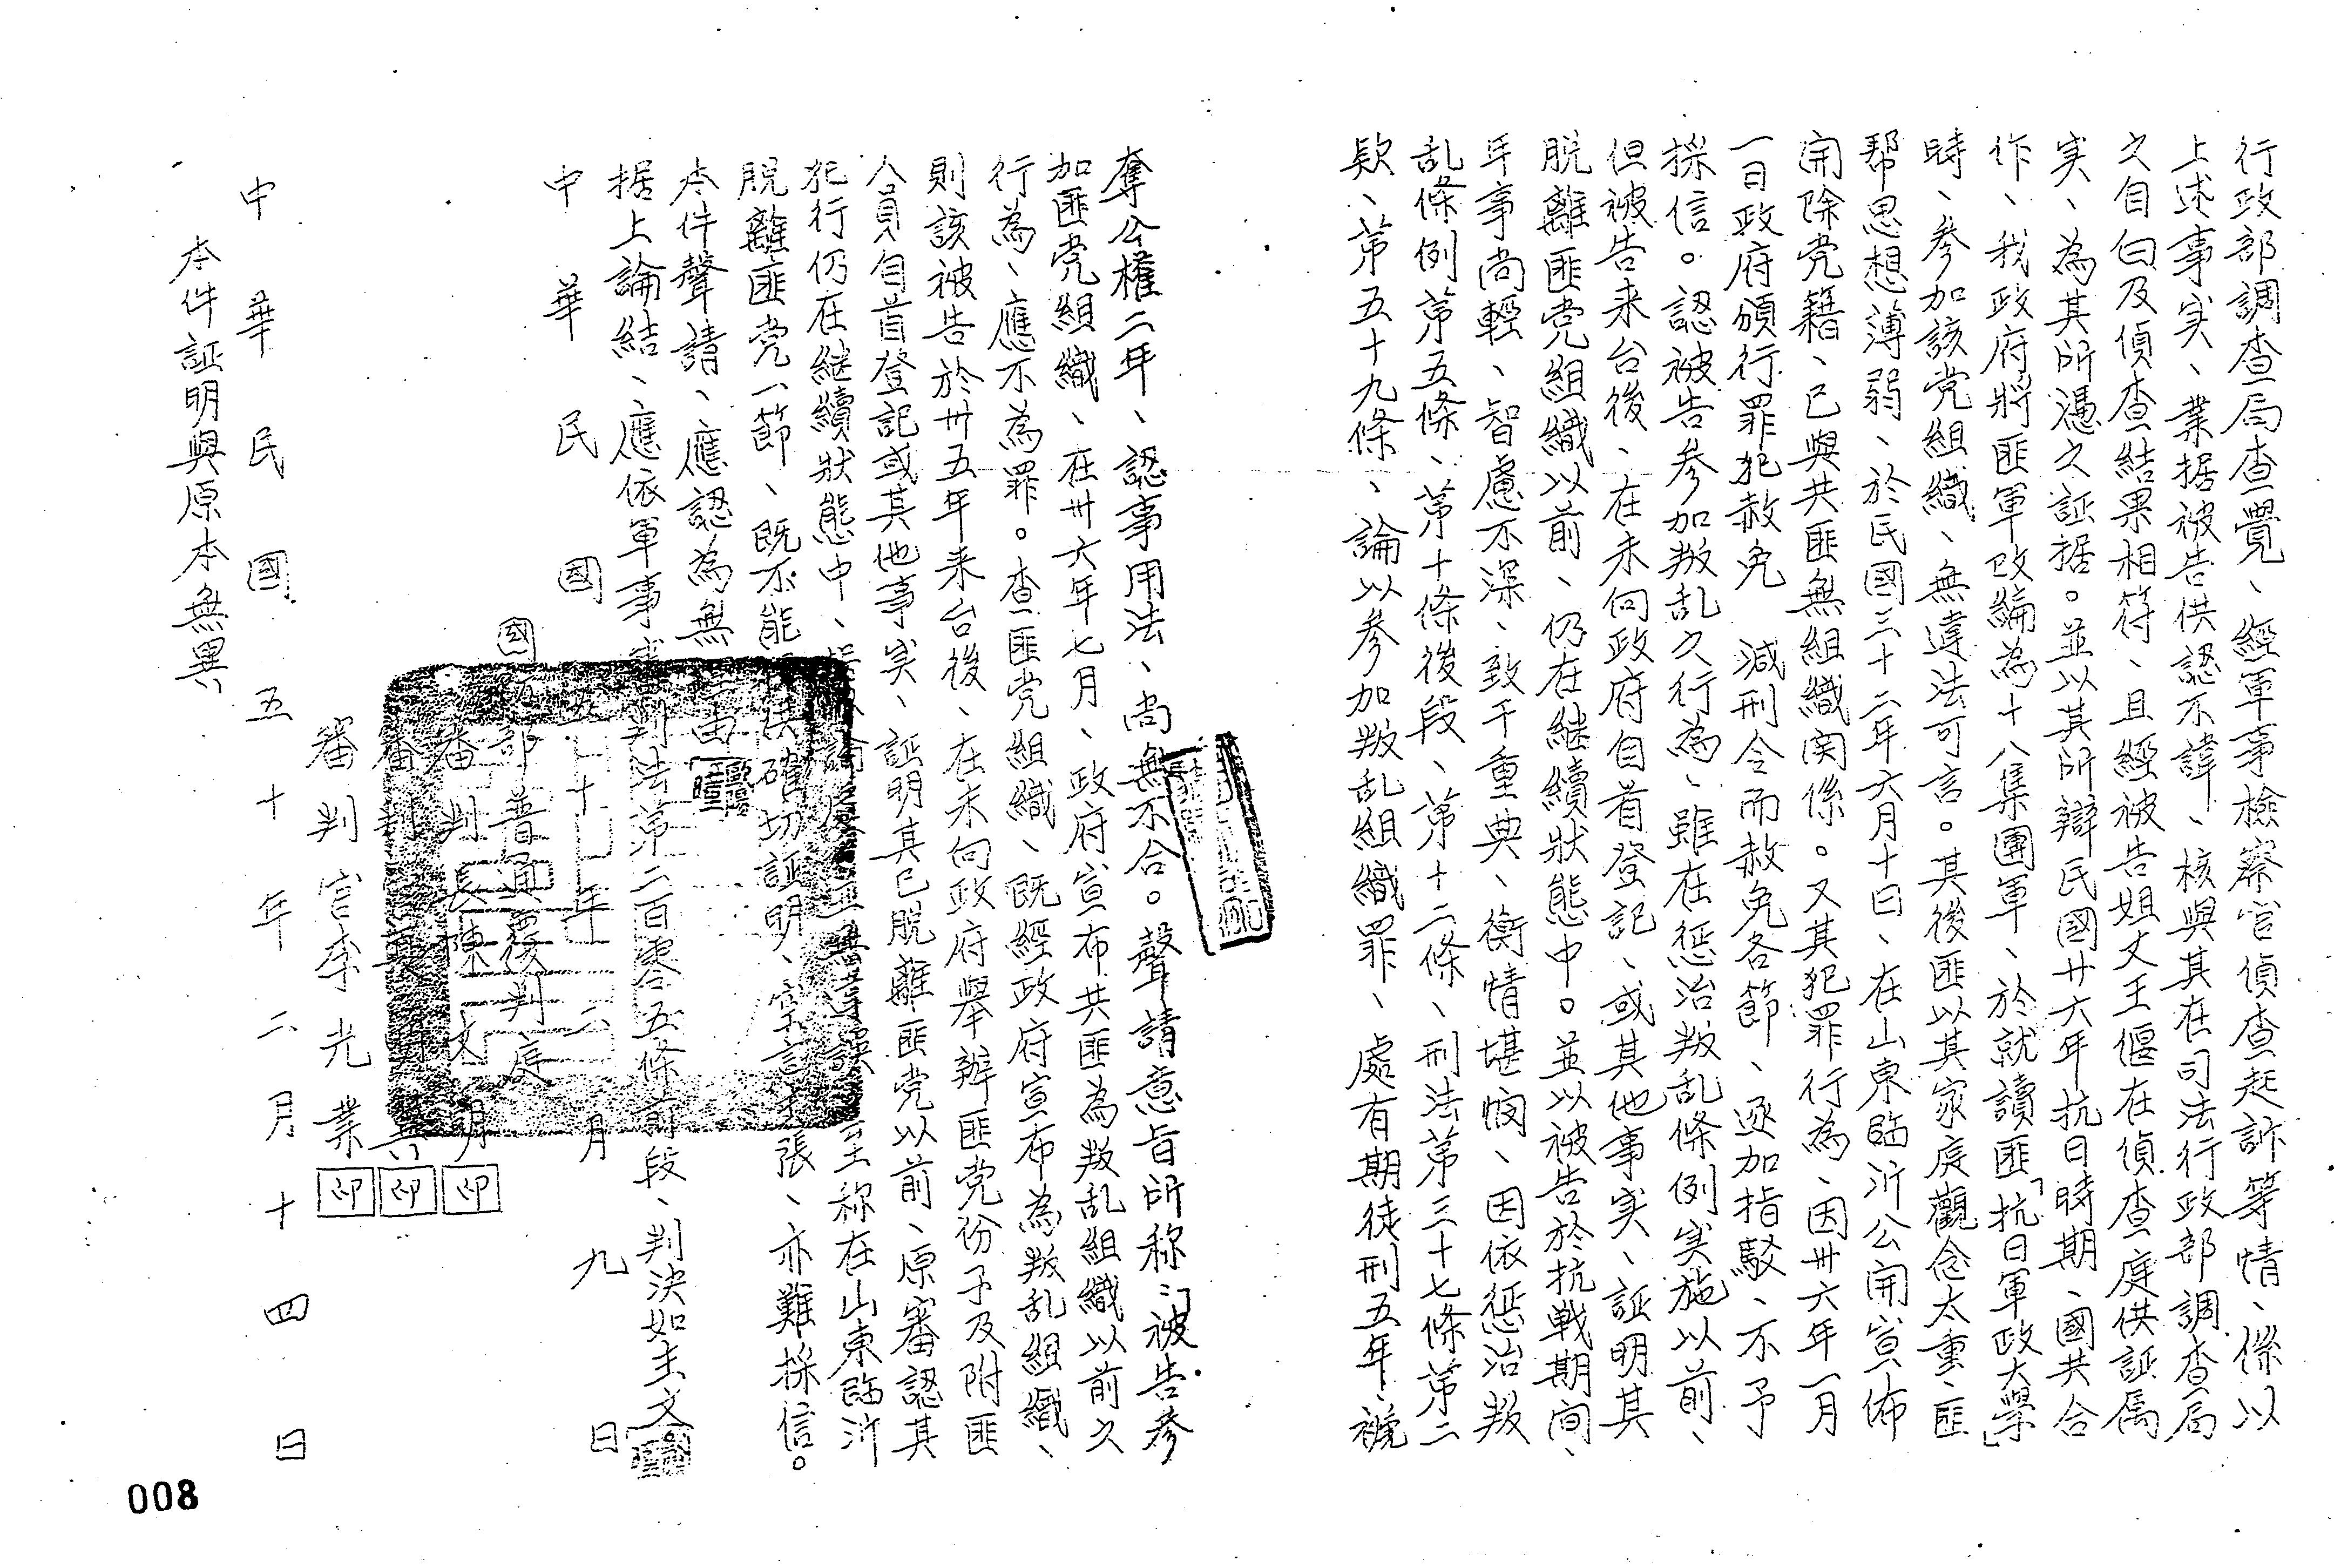 行政部調查局查覺、經軍事檢察官偵查起訴等情、係以
上述事实、業据被告供認不諱、核與其在司法行政部調查局
之自白及偵查結果相符、且經被告姐丈王偓在偵查庭供証属
实、為其所憑之証据。並以其所辯民國卅六年抗日時期、國共合
作、我政府將匪軍改編為十八集團軍、於就讀匪「抗日軍政大學」
時、參加該党組織、無違法可言。其後匪以其家庭觀念太重、匪
帮思想薄弱、於民國三十二年六月十日、在山東臨沂公開宣佈
開除党籍、已與共匪無組織関係。又其犯罪行為、因卅六年一月
一日政府頒行罪犯赦免 減刑令而赦免各節、逐加指駁、不予
採信。認被告參加叛乱之行為、雖在惩治叛乱條例实施以前、
但被告来台後、在未向政府自首登記、或其他事实、証明其
脱離匪党組織以前、仍在継續狀態中。並以被告於抗戦期间、
年事尚輕、智慮不深、致干重典、衡情堪憫、因依惩治叛
乱條例第五條、第十條後段、第十二條、刑法第三十七條第二
欵、第五十九條、論以參加叛乱組織罪、處有期徒刑五年、褫
奪公權二年、認事用法、尚無不合。聲請意旨所称：「被告參
加匪党組織、在卅六年七月、政府宣布共匪為叛乱組織以前之
行為、應不為罪。查匪党組織、既經政府宣布為叛乱組織、
則該被告於卅五年来台後、在未向政府舉辦匪党份子及附匪
人員自首登記或其他事实、証明其已脱離匪党以前、原審認其
犯行仍在継續狀態中、論處並無違誤至称在山東臨沂
脱離匪党一節、既不能供確切証明、空言主張、亦難採信。
本件聲請、應認為無理由
据上論結、應依軍事審判法第二百零五條前段、判決如主文
中華民國五十年二月九日
國防部普通覆判庭
審判長陳文明 印
審判官 印
審判官李光業 印
中華民國五十年二月十四日
本件証明與原本無異
008